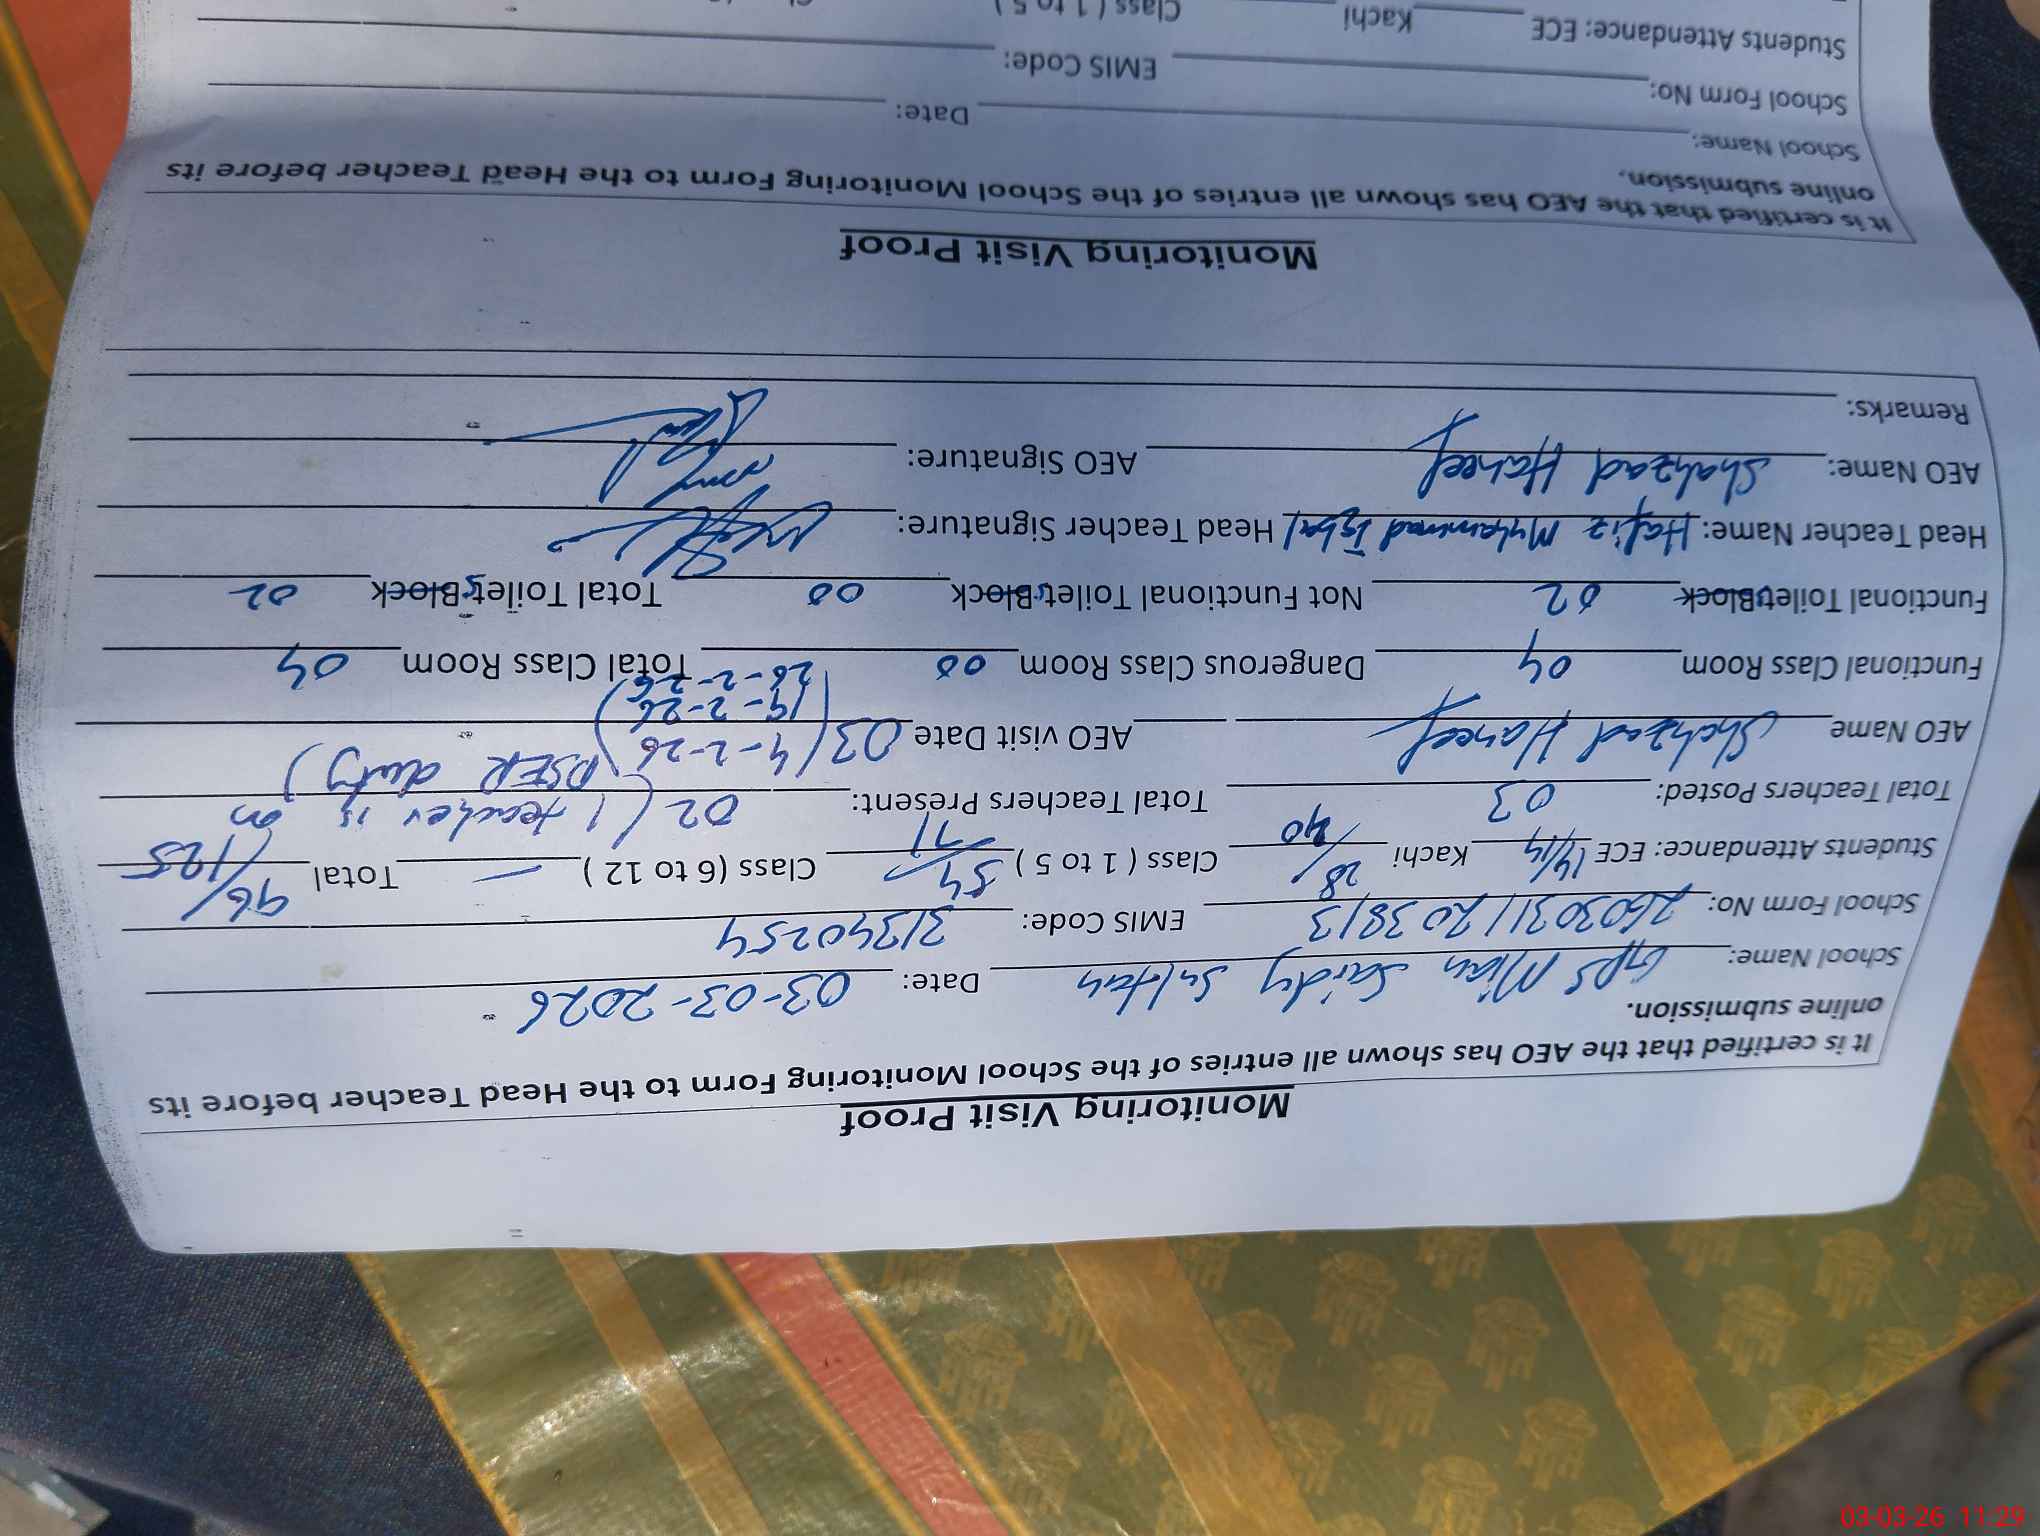 Monitoring Visit Proof
It is certified that the AEO has shown all entries of the School Monitoring Form to the Head Teacher before its
online submission.
School Name: GPS Mian Saidy Sultan Date: 03-03-2026
School Form No: 26030311203813 EMIS Code: 31340254
Students Attendance: ECE 14/14 Kachi 28/40 Class ( 1 to 5 ) 54/71 Class (6 to 12 ) — Total 96/125
Total Teachers Posted: 03 Total Teachers Present: 02 (1 teacher is on
PSER duty)
AEO Name Shahzad Haneef AEO visit Date 03 (4-2-26
19-2-26
26-2-26)
Functional Class Room 04 Dangerous Class Room 00 Total Class Room 04
Functional Toilets Block 02 Not Functional Toilets Block 00 Total Toilets Block 02
Head Teacher Name: Hafiz Muhammad Iqbal Head Teacher Signature:
AEO Name: Shahzad Haneef AEO Signature:
Remarks:
Monitoring Visit Proof
It is certified that the AEO has shown all entries of the School Monitoring Form to the Head Teacher before its
online submission.
School Name: Date:
School Form No: EMIS Code:
Students Attendance: ECE Kachi Class ( 1 to 5 )
03-03-26 11:29